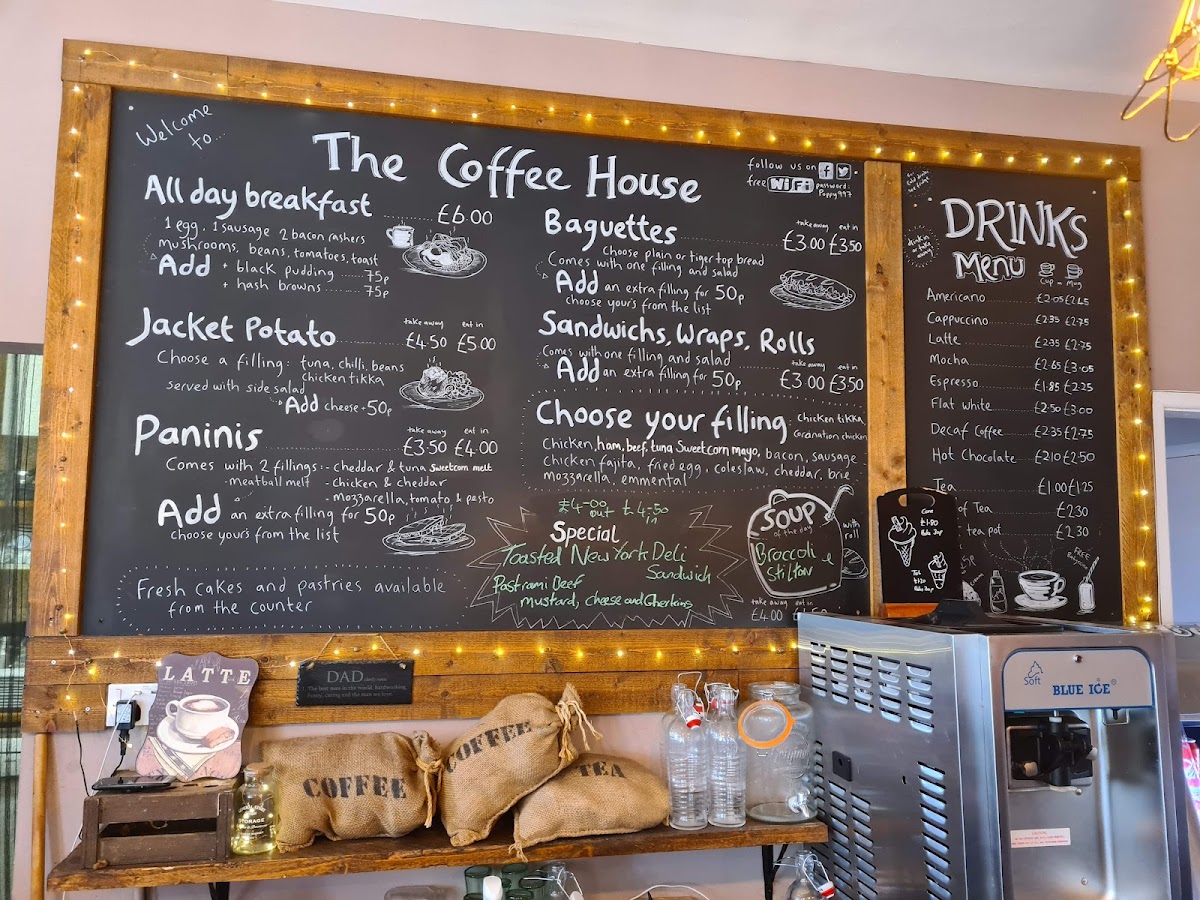 Welcome
to...
The Coffee House
follow us on
free WiFi password:
Poppy1997
All day breakfast £6.00
1 egg. 1 sausage 2 bacon rashers
mushrooms, beans, tomatoes, toast
Add + black pudding 75p
+ hash browns 75p
Jacket Potato
take away eat in
£4.50 £5.00
Choose a filling: tuna, chilli, beans
chicken tikka
served with side salad
Add cheese + 50p
Paninis
take away eat in
£3.50 £4.00
Comes with 2 fillings:- cheddar & tuna sweetcorn melt
- meatball melt - chicken & cheddar
- mozzarella, tomato, & pesto
Add an extra filling for 50p
choose yours from the list
Fresh cakes and pastries available
from the counter
Baguettes
take away eat in
£3.00 £3.50
Choose plain or tiger top bread
Comes with one filling and salad
Add an extra filling for 50p
choose yours from the list
Sandwichs, Wraps, Rolls
Comes with one filling and salad
take away eat in
Add an extra filling for 50p £3.00 £3.50
Choose your filling: chicken tikka
Coronation chicken
Chicken, ham, beef, tuna Sweetcorn mayo, bacon, sausage
Chicken fajita, fried egg, coleslaw, cheddar, brie
mozzarella, emmental
£4-00 £4-50
out in
Special
Toasted New York Deli
Sandwich
Pastrami Beef
mustard, cheese and Gherkins
Soup
of the day
with
roll
Broccoli &
Stilton
take away eat in
£4.00
DRINKS
Menu
Cup Mug
drink in
or take
away
Americano £2.05 £2.45
Cappuccino £2.35 £2.75
Latte £2.35 £2.75
Mocha £2.65 £3.05
Espresso £1.85 £2.25
Flat white £2.50 £3.00
Decaf Coffee £2.35 £2.75
Hot Chocolate £2.10 £2.50
Tea £1.00 £1.25
of Tea £2.30
tea pot £2.30
FREE
Cone
£1.80
Tub
LATTE
DAD
The best man in the world, hardworking,
COFFEE
COFFEE
TEA
STORAGE
Soft
BLUE ICE
CAUTION